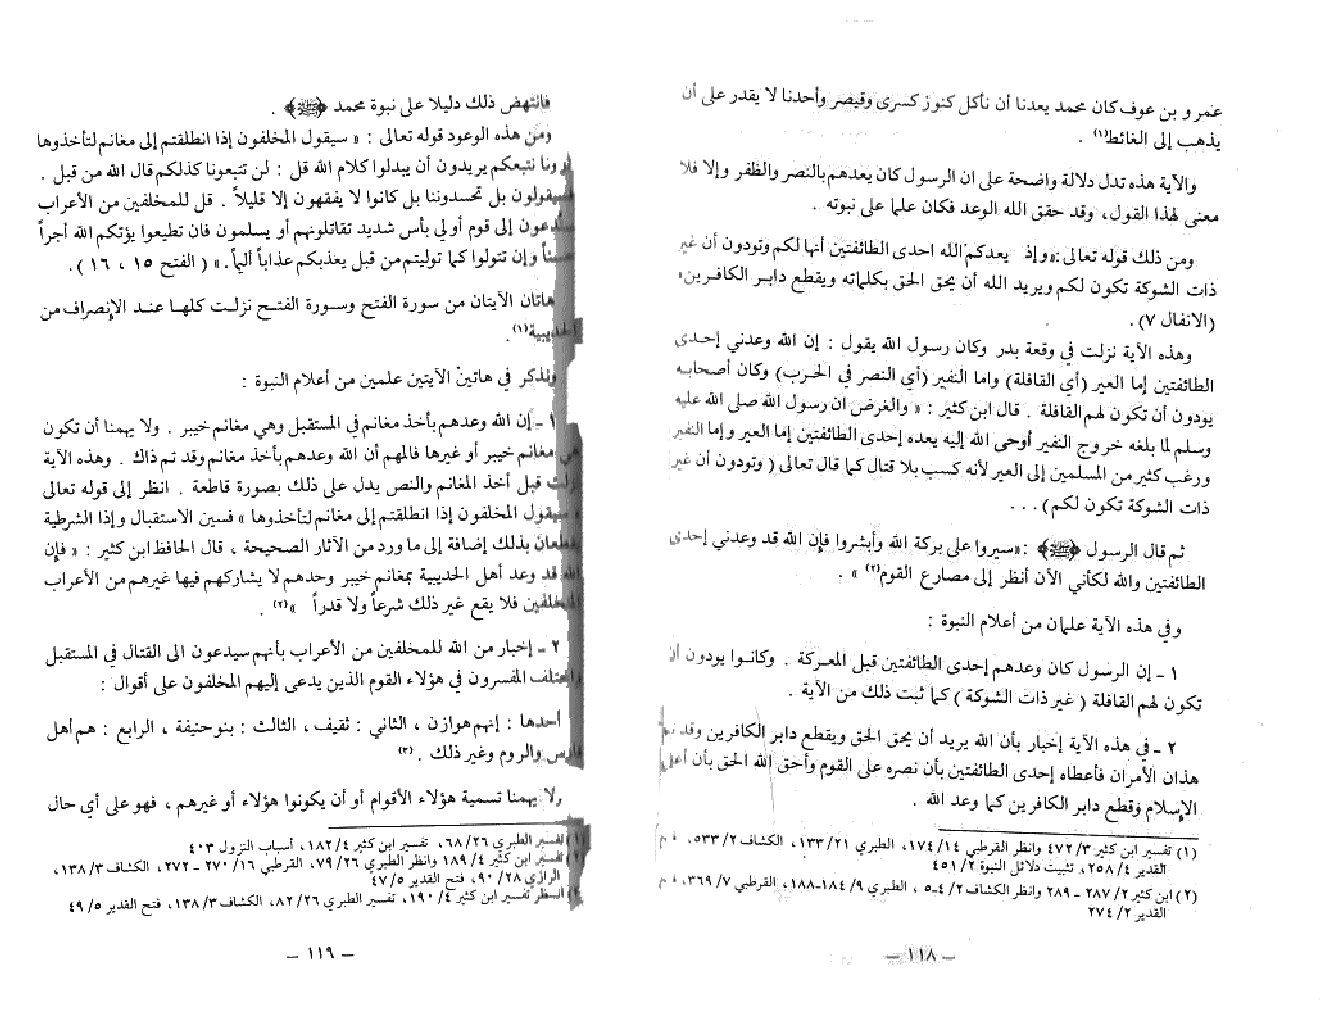 عمرو بن عوف كان محمد يعدنا أن نأكل كنوز كسرى وقيصر وأحدنا لا يقدر على أن
يذهب إلى الغائط(١) .
والآية هذه تدل دلالة واضحة على ان الرسول كان يعدهم بالنصر والظفر وإلا فلا
معنى لهذا القول، وقد حقق الله الوعد فكان علما على نبوته .
ومن ذلك قوله تعالى :«وإذ يعدكم الله احدى الطائفتين أنها لكم وتودون أن غير
ذات الشوكة تكون لكم ويريد الله أن يحق الحق بكلماته ويقطع دابر الكافرين»
(الانفال ٧).
وهذه الآية نزلت في وقعة بدر وكان رسول الله يقول : إن الله وعدني إحدى
الطائفتين إما العير (أي القافلة) واما النفير (أي النصر في الحرب) وكان أصحابه
يودون أن تكون لهم القافلة . قال ابن كثير : « والغرض ان رسول الله صلى الله عليه
وسلم لما بلغه خروج النفير أوحى الله إليه يعده إحدى الطائفتين إما العير وإما النفير
ورغب كثير من المسلمين إلى العير لأنه كسب بلا قتال كما قال تعالى ( وتودون أن غير
ذات الشوكة تكون لكم) . . .
ثم قال الرسول ﴿ﷺ﴾ :«سيروا على بركة الله وأبشروا فإن الله قد وعدني إحدى
الطائفتين والله لكأني الآن أنظر إلى مصارع القوم(٢) » .
وفي هذه الآية علمان من أعلام النبوة :
١ - إن الرسول كان وعدهم إحدى الطائفتين قبل المعركة . وكانوا يودون أن
تكون لهم القافلة ( غير ذات الشوكة ) كما ثبت ذلك من الآية .
٢ - في هذه الآية إخبار بأن الله يريد أن يحق الحق ويقطع دابر الكافرين وقد تم
هذان الأمران فأعطاه إحدى الطائفتين بأن نصره على القوم وأحق الله الحق بأن أعلى
الإسلام وقطع دابر الكافرين كما وعد الله .
(١) تفسير ابن كثير ٣/ ٤٧٢ وانظر القرطبي ١٤/ ١٧٤، الطبري ٢١/ ١٣٣، الكشاف ٢/ ٥٣٣،
القدير ٤/ ٢٥٨، تثبيت دلائل النبوة ٢/ ٤٥١
(٢) ابن كثير ٢/ ٢٨٧ - ٢٨٩ وانظر الكشاف ٢/ ٤-٥ ، الطبري ٩/ ١٨٤-١٨٨، القرطبي ٧/ ٣٦٩،
القدير ٢/ ٢٧٤
- ١١٨ -
فانتهض ذلك دليلا على نبوة محمد ﴿ﷺ﴾ .
ومن هذه الوعود قوله تعالى : « سيقول المخلفون إذا انطلقتم إلى مغانم لتأخذوها
ذرونا نتبعكم يريدون أن يبدلوا كلام الله قل : لن تتبعونا كذلكم قال الله من قبل .
فسيقولون بل تحسدوننا بل كانوا لا يفقهون إلا قليلاً . قل للمخلفين من الأعراب
ستدعون إلى قوم أولي بأس شديد تقاتلونهم أو يسلمون فان تطيعوا يؤتكم الله أجراً
حسناً وإن تتولوا كما توليتم من قبل يعذبكم عذاباً أليماً.» ( الفتح ١٥ ، ١٦ ).
هاتان الآيتان من سورة الفتح وسورة الفتح نزلت كلها عند الإنصراف من
الحديبية(١).
ونذكر في هاتين الآيتين علمين من أعلام النبوة :
١ - إن الله وعدهم بأخذ مغانم في المستقبل وهي مغانم خيبر . ولا يهمنا أن تكون
هي مغانم خيبر أو غيرها فالمهم أن الله وعدهم بأخذ مغانم وقد تم ذاك . وهذه الآية
نزلت قبل أخذ المغانم والنص يدل على ذلك بصورة قاطعة . انظر إلى قوله تعالى
« سيقول المخلفون إذا انطلقتم إلى مغانم لتأخذوها » فسين الاستقبال وإذا الشرطية
يقطعان بذلك إضافة إلى ما ورد من الآثار الصحيحة ، قال الحافظ ابن كثير : « فإن
الله قد وعد أهل الحديبية بمغانم خيبر وحدهم لا يشاركهم فيها غيرهم من الأعراب
المتخلفين فلا يقع غير ذلك شرعاً ولا قدراً »(٢) .
٢ - إخبار من الله للمخلفين من الأعراب بأنهم سيدعون الى القتال في المستقبل
واختلف المفسرون في هؤلاء القوم الذين يدعى إليهم المخلفون على أقوال :
أحدها : إنهم هوازن ، الثاني : ثقيف ، الثالث : بنو حنيفة ، الرابع : هم أهل
فارس والروم وغير ذلك .(٣)
ولا يهمنا تسمية هؤلاء الأقوام أو أن يكونوا هؤلاء أو غيرهم ، فهو على أي حال
(١) تفسير الطبري ٢٦/ ٦٨، تفسير ابن كثير ٤/ ١٨٢، أسباب النزول ٤٠٣
(٢) تفسير ابن كثير ٤/ ١٨٩ وانظر الطبري ٢٦/ ٧٩، القرطبي ١٦/ ٢٧٠ - ٢٧٢، الكشاف ٣/ ١٣٨،
الرازي ٢٨/ ٩٠، فتح القدير ٥/ ٤٧
(٣) انظر تفسير ابن كثير ٤/ ١٩٠، تفسير الطبري ٢٦/ ٨٢، الكشاف ٣/ ١٣٨، فتح القدير ٥/ ٤٩
- ١١٩ -